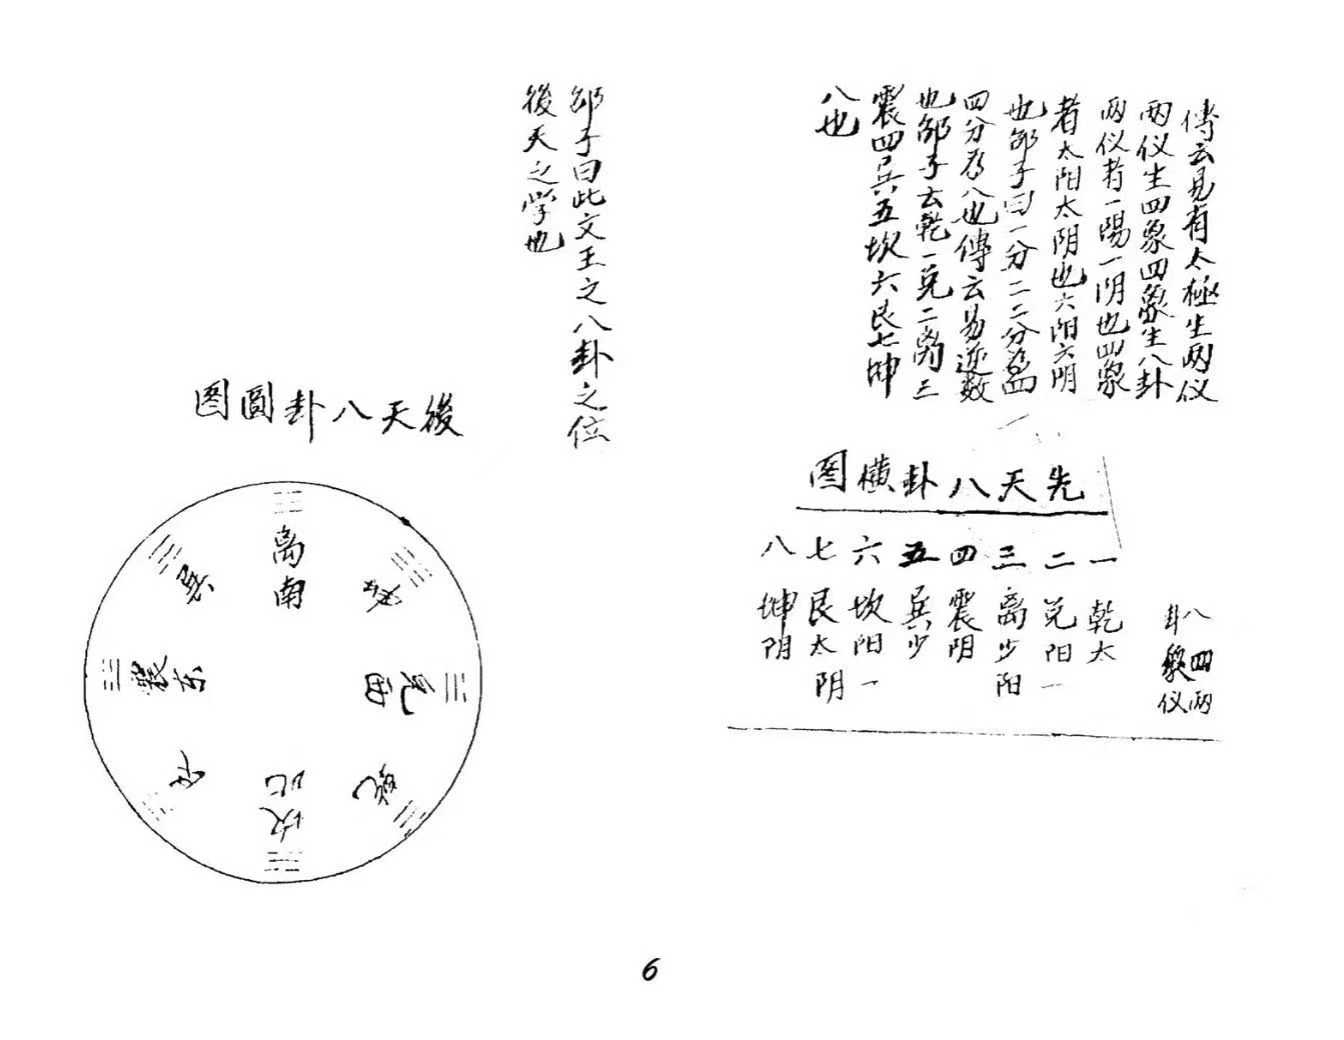 傳云見有太極生两仪
两仪生四象四象生八卦
两仪者一陽一阴也四象
者太阳太阴也六阳六阴
也邵子曰一分二二分為四
四分為八也傳云易逆数
也邵子云乾一兑二离三
震四巽五坎六艮七坤
八也
先天八卦横图
八卦
四象
两仪
一乾太
二兑阳一
三离少阳
四震阴
五巽少
六坎阳一
七艮太阴
八坤阴
邵子曰此文王之八卦之位
後天之学也
後天八卦圓图
离南
坤
兑西
乾
坎北
艮
震东
巽
6